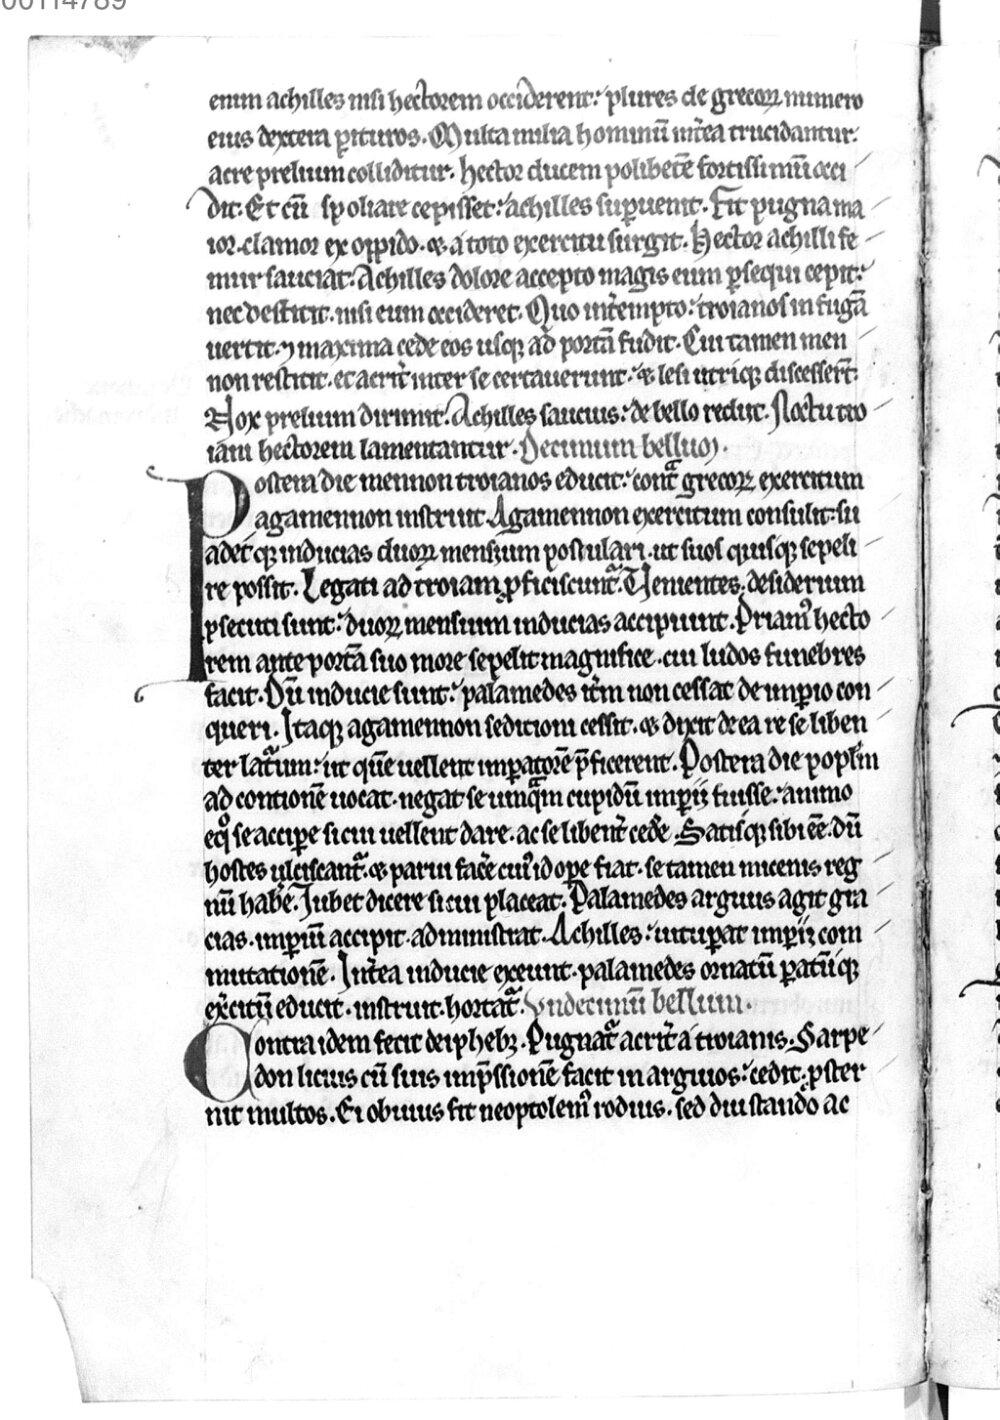 00114789
enim achilles nisi hectorem occiderent: plures de grecoꝝ numero
eius dextera ꝑituros. Multa milia hominū int̄ea trucidantur.
acre prelium colliditur. hector ducem polibetē fortissimū occi
dit. Et cū spoliare cepisset: achilles suꝑuenit. Fit pugna ma
ior. clamor ex oppido. ⁊ a toto exercitu surgit. Hector achilli fe
mur sauciat. Achilles dolore accepto magis eum ꝑsequi cepit:
nec destitit. nisi eum occideret. Quo int̄empto: troianos in fugā
uertit. ⁊ maxima cede eos usqꝫ ad portā fudit. Cui tamen men
non restitit. et acrit̄ inter se certauerunt: ⁊ lesi utriqꝫ discesser̄t.
Nox prelium dirimit. Achilles saucius: de bello rediit. Noctu tro
iani hectorem lamentantur. Decimum belluꝫ.
Postera die mennon troianos educit: contᷓ grecoꝝ exercitum
agamennon instruit Agamennon exercitum consulit: su
adet qꝫ inducias duoꝝ mensium postulari. ut suos quisqꝫ sepeli
re possit. Legati ad troiam ꝓficiscuntᷓ. Uementes. desiderium
ꝑsecuti sunt: duoꝝ mensium inducias accipiunt. Priamꝰ hecto
rem ante portā suo more sepelit magnifice. cui ludos funebres
facit. Dū inducie sunt: palamedes it̄m non cessat de imꝑio con
queri. Itaqꝫ agamennon seditioni cessit. ⁊ dixit de ea re se liben
ter latᷓum: ut quē uellent imꝑatorē p̄ficerent. Postera die popl̄m
ad contionē uocat. negat se umqᷓm cupidū imꝑij fuisse: animo
eqͦ se acciꝑe si cui uellent dare. ac se libent̄ ced̄e. Satisqꝫ sibi ēē. dū
hostes ulciscantᷓ. ⁊ parui fac̄e cuiꝰ id oꝑe fiat. se tamen micenis reg
nū hab̄e. Jubet dicere si cui placeat. Palamedes arguus agit gra
cias. imꝑiū accipit. administrat. Achilles: uituꝑat imꝑij com
mutationē. Int̄ea inducie exeunt. palamedes ornatū ꝑatūqꝫ
ex̄citū educit. instruit. hortatᷓ. Undecimū bellum.
Contra idem fecit deiphebꝫ. Pugnatᷓ acrit̄ a troianis. Sarpe
don licius cū suis imp̄ssionē facit in arguos: cedit. ꝓster
nit multos. Ei obuius fit neoptolemꝰ rodius. sed diu stando ac